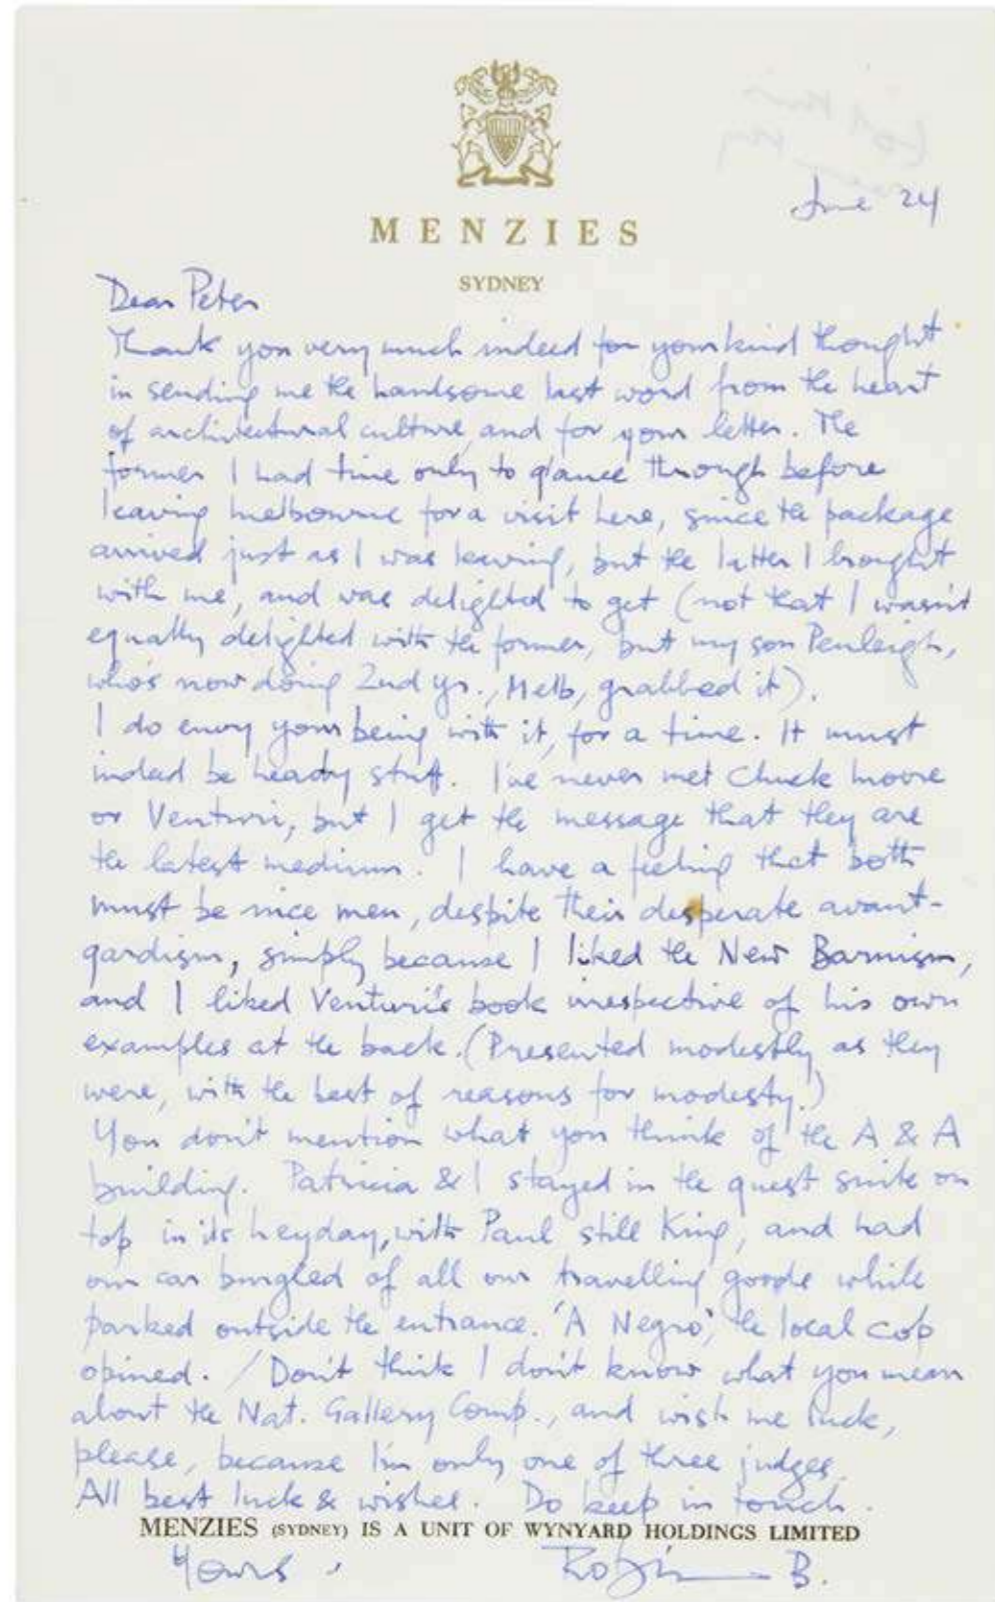 June 24
MENZIES
SYDNEY
Dear Peter
Thank you very much indeed for your kind thought
in sending me the handsome last word from the heart
of architectural culture, and for your letter. The
former I had time only to glance through before
leaving Melbourne for a visit here, since the package
arrived just as I was leaving, but the latter I brought
with me, and was delighted to get (not that I wasn't
equally delighted with the former, but my son Penleigh,
who's now doing 2nd yr., Melb, grabbed it).
I do envy your being with it, for a time. It must
indeed be heady stuff. I've never met Chuck Moore
or Venturi, but I get the message that they are
the latest medium. I have a feeling that both
must be nice men, despite their desperate avant-
gardism, simply because I liked the New Barnism,
and I liked Venturi's book irrespective of his own
examples at the back. (Presented modestly as they
were, with the best of reasons for modesty.)
You don't mention what you think of the A & A
building. Patricia & I stayed in the guest suite on
top in its heyday, with Paul still King, and had
our car burgled of all our travelling goods while
parked outside the entrance. 'A Negro', the local cop
opined. / Don't think I don't know what you mean
about the Nat. Gallery Comp., and wish me luck,
please, because I'm only one of three judges.
All best luck & wishes. Do keep in touch.
MENZIES (SYDNEY) IS A UNIT OF WYNYARD HOLDINGS LIMITED
Yours,
Robin B.